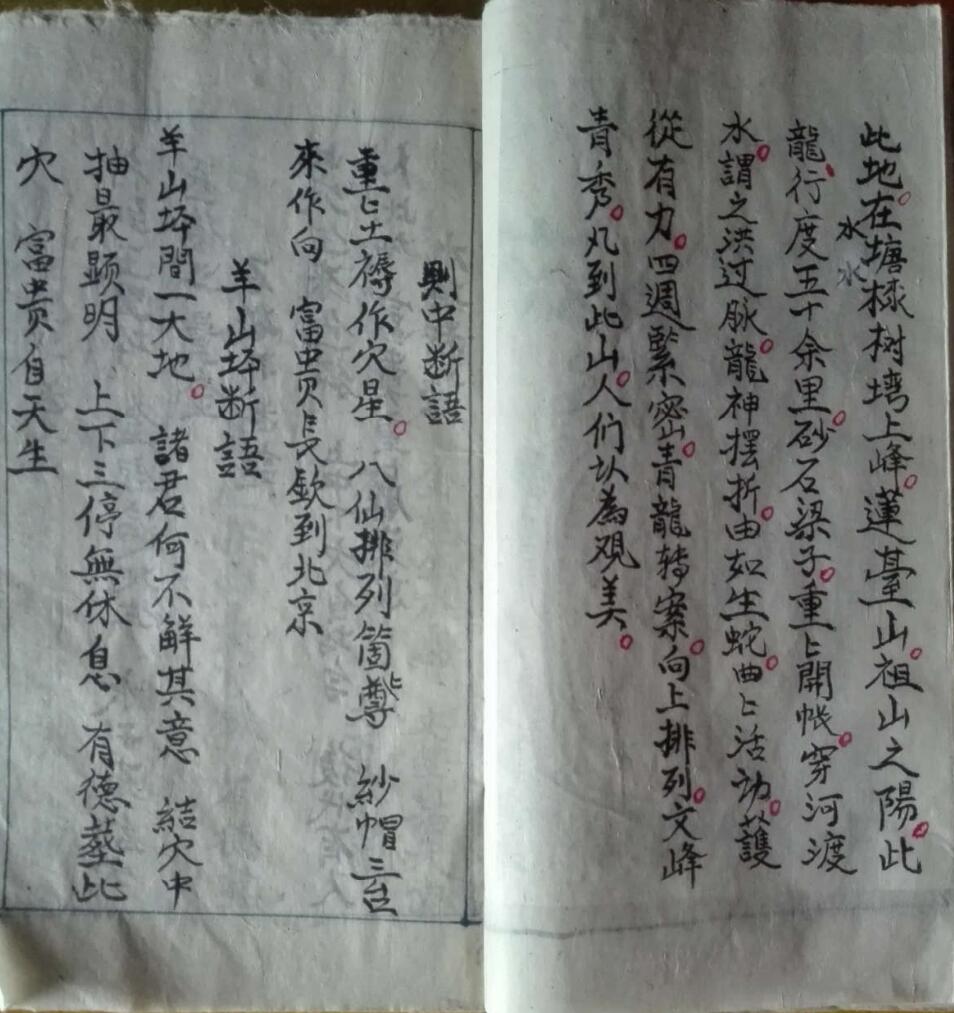 此地。在塘树塆上峰。蓮臺山。祖山之陽。此
水水
龍、行度五十余里。砂石梁子。重〻開帐。穿河渡
水。謂之洪过脉。龍神摆折。由如生蛇。曲〻活动。護
從有力。四週緊密。青龍转案。向上排列。文峰
青秀。凡到此山。人们以為观美。
断語
重〻土褥作穴星。八仙排列箇〻尊 紗帽三台
來作向 富貴貝長歐到北京
羊山坪断語
羊山坪間一大地。 諸君何不解其意 結穴中
抽最顕明 上下三停無休息 有德塟此
穴 富贵自天生